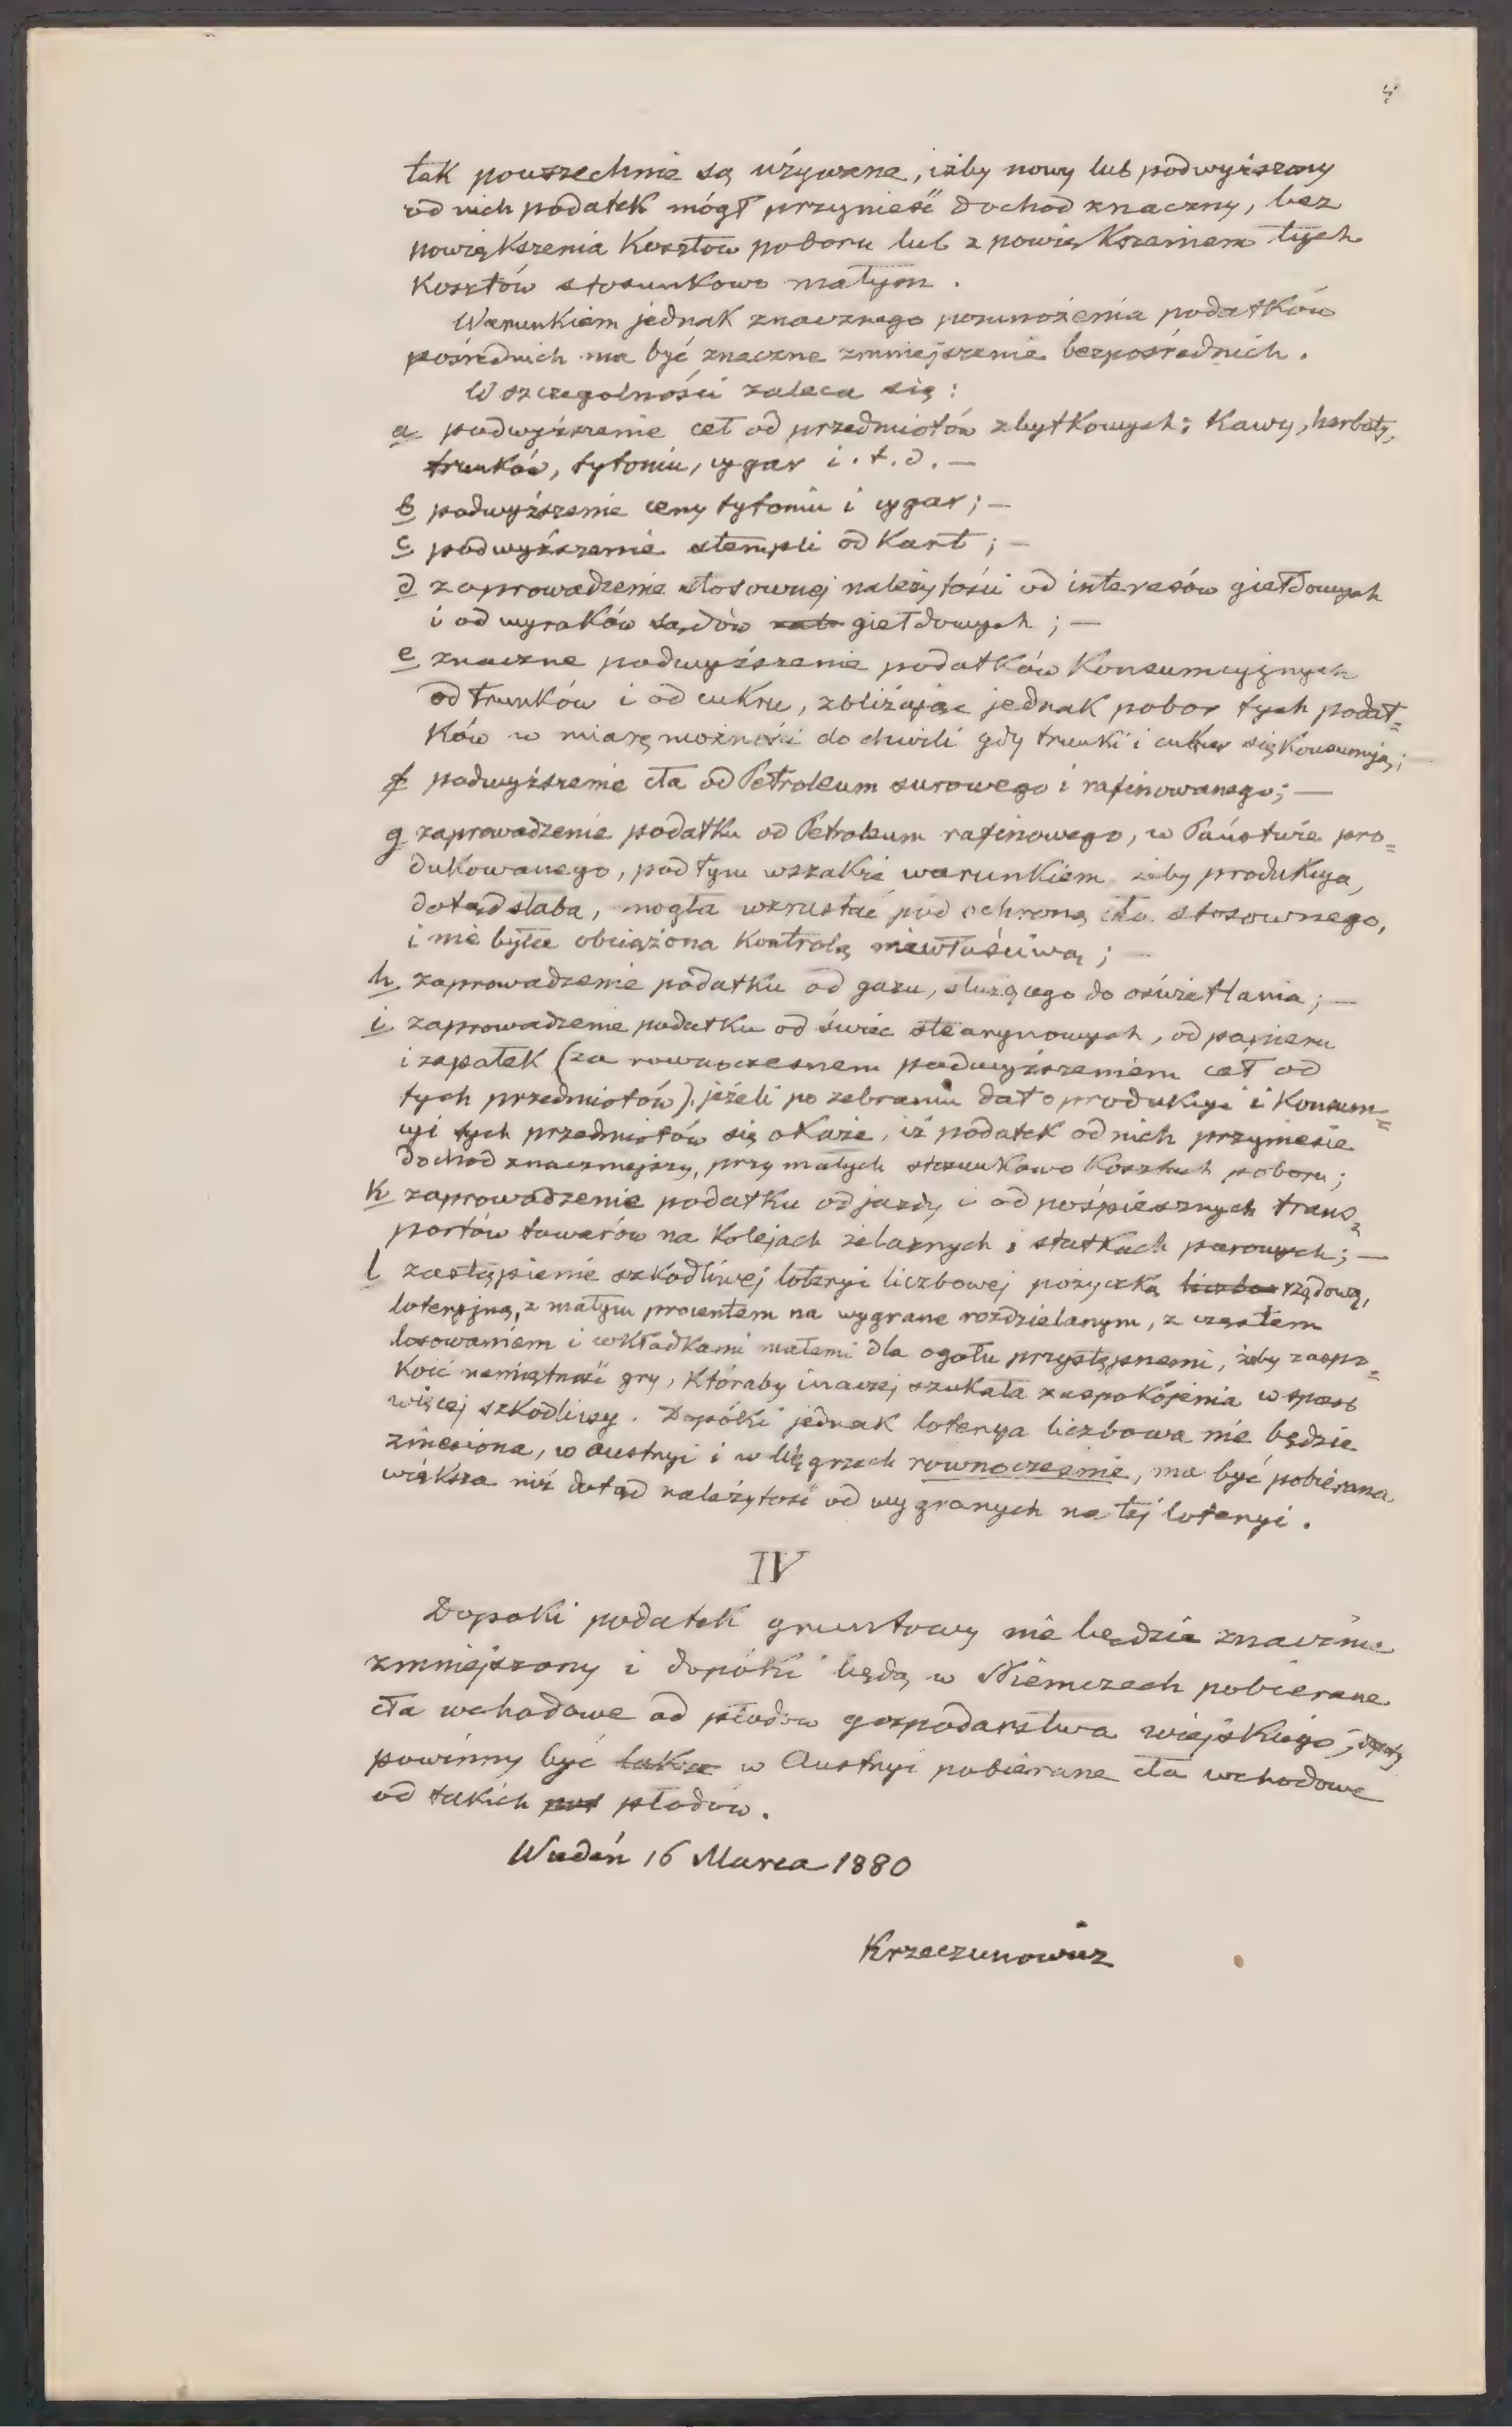 4
tak powszechnie są używane, iżby nowy lub podwyższony
od nich podatek mógł przynieść dochod znaczny, bez
powiększenia Kosztow poboru lub z powiększeniem tych
Kosztów stosunkowo małym.
Warunkiem jednak znacznego pomnożenia podatków
pośrednich ma być znaczne zmniejszenie bezpośrednich.
W szczegolności zaleca się:
a podwyższenie ceł od przedmiotów zbytkowych: Kawy, herbaty,
trunków, tytoniu, cygar i. t. d. —
b podwyższenie ceny tytoniu i cygar; —
c podwyższenie stempli od Kart; —
d zaprowadzenie stosownej należytości od interesów giełdowych
i od wyroków sądów giełdowych; —
e znaczne podwyższenie podatków Konsumcyjnych
od trunków i od cukru, zbliżając jednak pobor tych podat=
Ków w miarę możności do chwili gdy trunki i cukier się Konsumują; —
f podwyższenie cła od Petroleum surowego i rafinowanego; —
g zaprowadzenie podatku od Petroleum rafinowego, w Państwie pro=
dukowanego, pod tym wszakże warunkiem żeby produkcya,
dotąd słaba, mogła wzrastać pod ochroną cła stosownego,
i nie była obciążona Kontrolą niewłaściwą; —
h zaprowadzenie podatku od gazu, służącego do oświetlania; —
i zaprowadzenie podatku od świec stearynowych, od papieru
i zapałek (za rownoczesnem podwyższeniem ceł od
tych przedmiotów), jeżeli po zebraniu dat o produkcyi i Konsum=
cyi tych przedmiotów się okaże, iż podatek od nich przyniesie
dochod znaczniejszy, przy małych stosunkowo Kosztach poboru;
k zaprowadzenie podatku od jazdy i od pośpiesznych trans=
portów towarów na Kolejach żelaznych i statkach parowych; —
l zastąpienie szkodliwej loteryi liczbowej pożyczką rządową,
loteryjną, z małym procentem na wygrane rozdzielanym, z częstem
losowaniem i wkładkami małemi dla ogołu przystępnemi, żeby zaspo=
Koić namiętność gry, Któraby inaczej szukała zaspokojenia w sposob
więcej szkodliwy. Dopóki jednak loterya liczbowa nie będzie
zniesiona, w Austryi i w Węgrzech rownocześnie, ma być pobierana
większa niż dotąd należytość od wygranych na tej loteryi.
IV
Dopoki podatek gruntowy nie będzie znacznie
zmniejszony i dopóki będą w Niemczech pobierane
cła wchodowe od płodow gospodarstwa wiejskiego, dopoty
powinny być w Austryi pobierane cła wchodowe
od takich płodów.
Wiedeń 16 Marca 1880
Krzeczunowicz